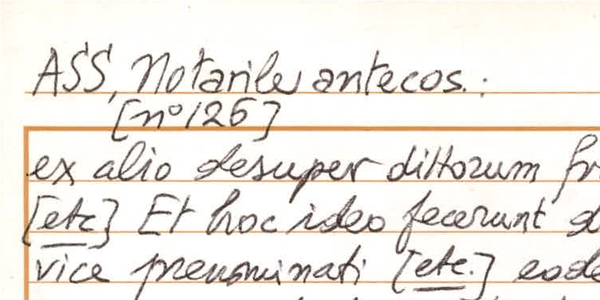 ASS, Notarile antecos.:
[n° 126]
ex alio desuper dittorum fr
[etc] Et hoc ideo fecerunt d
vice prenominati [etc.] eode